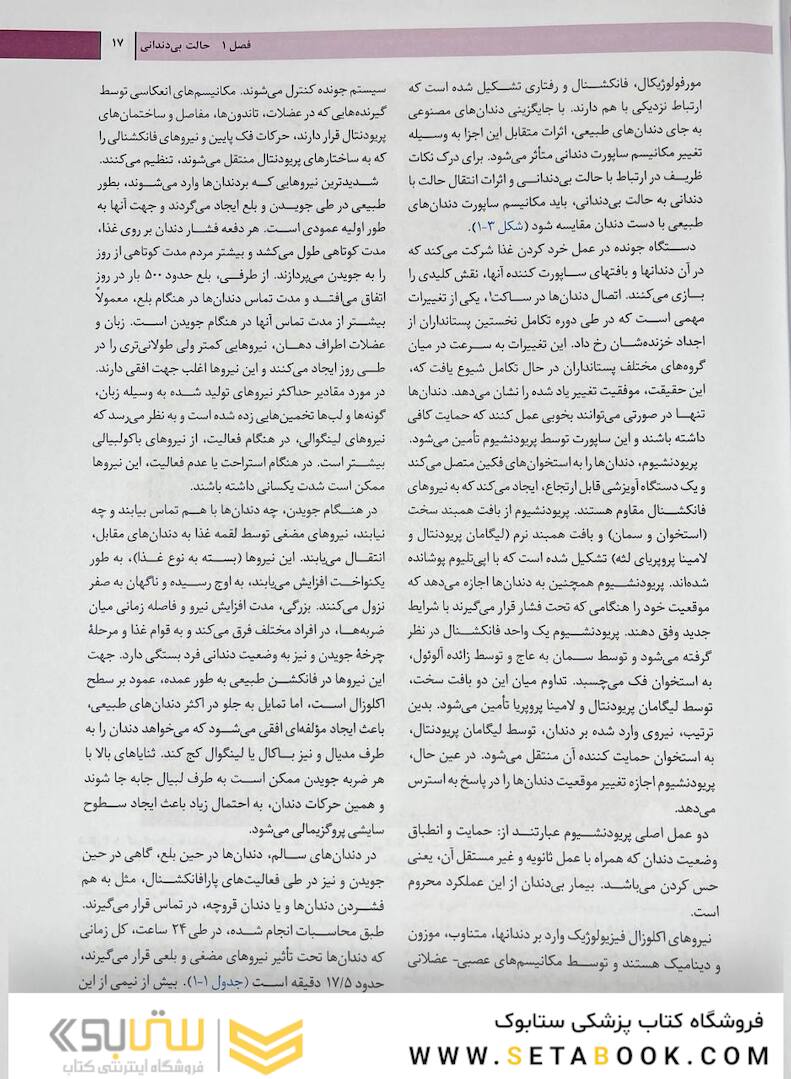 فصل ۱ حالت بی‌دندانی ۱۷
مورفولوژیکال، فانکشنال و رفتاری تشکیل شده است که
ارتباط نزدیکی با هم دارند. با جایگزینی دندان‌های مصنوعی
به جای دندان‌های طبیعی، اثرات متقابل این اجزا به وسیله
تغییر مکانیسم ساپورت دندانی متأثر می‌شود. برای درک نکات
ظریف در ارتباط با حالت بی‌دندانی و اثرات انتقال حالت با
دندانی به حالت بی‌دندانی، باید مکانیسم ساپورت دندان‌های
طبیعی با دست دندان مقایسه شود (شکل ۳-۱).
دستگاه جونده در عمل خرد کردن غذا شرکت می‌کند که
در آن دندانها و بافتهای ساپورت کننده آنها، نقش کلیدی را
بازی می‌کنند. اتصال دندان‌ها در ساکت۱، یکی از تغییرات
مهمی است که در طی دوره تکامل نخستین پستانداران از
اجداد خزنده‌شان رخ داد. این تغییرات به سرعت در میان
گروه‌های مختلف پستانداران در حال تکامل شیوع یافت، که
این حقیقت، موفقیت تغییر یاد شده را نشان می‌دهد. دندان‌ها
تنها در صورتی می‌توانند بخوبی عمل کنند که حمایت کافی
داشته باشند و این ساپورت توسط پریودنشیوم تأمین می‌شود.
پریودنشیوم، دندان‌ها را به استخوان‌های فکین متصل می‌کند
و یک دستگاه آویزشی قابل ارتجاع، ایجاد می‌کند که به نیروهای
فانکشنال مقاوم هستند. پریودنشیوم از بافت همبند سخت
(استخوان و سمان) و بافت همبند نرم (لیگامان پریودنتال و
لامینا پروپریای لثه) تشکیل شده است که با اپی‌تلیوم پوشانده
شده‌اند. پریودنشیوم همچنین به دندان‌ها اجازه می‌دهد که
موقعیت خود را هنگامی که تحت فشار قرار می‌گیرند با شرایط
جدید وفق دهند. پریودنشیوم یک واحد فانکشنال در نظر
گرفته می‌شود و توسط سمان به عاج و توسط زائده آلوئول،
به استخوان فک می‌چسبد. تداوم میان این دو بافت سخت،
توسط لیگامان پریودنتال و لامینا پروپریا تأمین می‌شود. بدین
ترتیب، نیروی وارد شده بر دندان، توسط لیگامان پریودنتال،
به استخوان حمایت کننده آن منتقل می‌شود. در عین حال،
پریودنشیوم اجازه تغییر موقعیت دندان‌ها را در پاسخ به استرس
می‌دهد.
دو عمل اصلی پریودنشیوم عبارتند از: حمایت و انطباق
وضعیت دندان که همراه با عمل ثانویه و غیر مستقل آن، یعنی
حس کردن می‌باشد. بیمار بی‌دندان از این عملکرد محروم
است.
نیروهای اکلوزال فیزیولوژیک وارد بر دندانها، متناوب، موزون
و دینامیک هستند و توسط مکانیسم‌های عصبی- عضلانی
سیستم جونده کنترل می‌شوند. مکانیسم‌های انعکاسی توسط
گیرنده‌هایی که در عضلات، تاندون‌ها، مفاصل و ساختمان‌های
پریودنتال قرار دارند، حرکات فک پایین و نیروهای فانکشنالی را
که به ساختارهای پریودنتال منتقل می‌شوند، تنظیم می‌کنند.
شدیدترین نیروهایی که بردندان‌ها وارد می‌شوند، بطور
طبیعی در طی جویدن و بلع ایجاد می‌گردند و جهت آنها به
طور اولیه عمودی است. هر دفعه فشار دندان بر روی غذا،
مدت کوتاهی طول می‌کشد و بیشتر مردم مدت کوتاهی از روز
را به جویدن می‌پردازند. از طرفی، بلع حدود ۵۰۰ بار در روز
اتفاق می‌افتد و مدت تماس دندان‌ها در هنگام بلع، معمولاً
بیشتر از مدت تماس آنها در هنگام جویدن است. زبان و
عضلات اطراف دهان، نیروهایی کمتر ولی طولانی‌تری را در
طی روز ایجاد می‌کنند و این نیروها اغلب جهت افقی دارند.
در مورد مقادیر حداکثر نیروهای تولید شده به وسیله زبان،
گونه‌ها و لب‌ها تخمین‌هایی زده شده است و به نظر می‌رسد که
نیروهای لینگوالی، در هنگام فعالیت، از نیروهای باکولبیالی
بیشتر است. در هنگام استراحت یا عدم فعالیت، این نیروها
ممکن است شدت یکسانی داشته باشند.
در هنگام جویدن، چه دندان‌ها با هم تماس بیابند و چه
نیابند، نیروهای مضغی توسط لقمه غذا به دندان‌های مقابل،
انتقال می‌یابند. این نیروها (بسته به نوع غذا)، به طور
یکنواخت افزایش می‌یابند، به اوج رسیده و ناگهان به صفر
نزول می‌کنند. بزرگی، مدت افزایش نیرو و فاصله زمانی میان
ضربه‌ها، در افراد مختلف فرق می‌کند و به قوام غذا و مرحلهٔ
چرخهٔ جویدن و نیز به وضعیت دندانی فرد بستگی دارد. جهت
این نیروها در فانکشن طبیعی به طور عمده، عمود بر سطح
اکلوزال است، اما تمایل به جلو در اکثر دندان‌های طبیعی،
باعث ایجاد مؤلفه‌ای افقی می‌شود که می‌خواهد دندان را به
طرف مدیال و نیز باکال یا لینگوال کج کند. ثنایاهای بالا با
هر ضربه جویدن ممکن است به طرف لبیال جابه جا شوند
و همین حرکات دندان، به احتمال زیاد باعث ایجاد سطوح
سایشی پروگزیمالی می‌شود.
در دندان‌های سالم، دندان‌ها در حین بلع، گاهی در حین
جویدن و نیز در طی فعالیت‌های پارافانکشنال، مثل به هم
فشردن دندان‌ها و یا دندان قروچه، در تماس قرار می‌گیرند.
طبق محاسبات انجام شده، در طی ۲۴ ساعت، کل زمانی
که دندان‌ها تحت تأثیر نیروهای مضغی و بلعی قرار می‌گیرند،
حدود ۱۷/۵ دقیقه است (جدول ۱-۱). بیش از نیمی از این
فروشگاه کتاب پزشکی ستابوک
WWW.SETABOOK.COM
ستابوک
فروشگاه اینترنتی کتاب